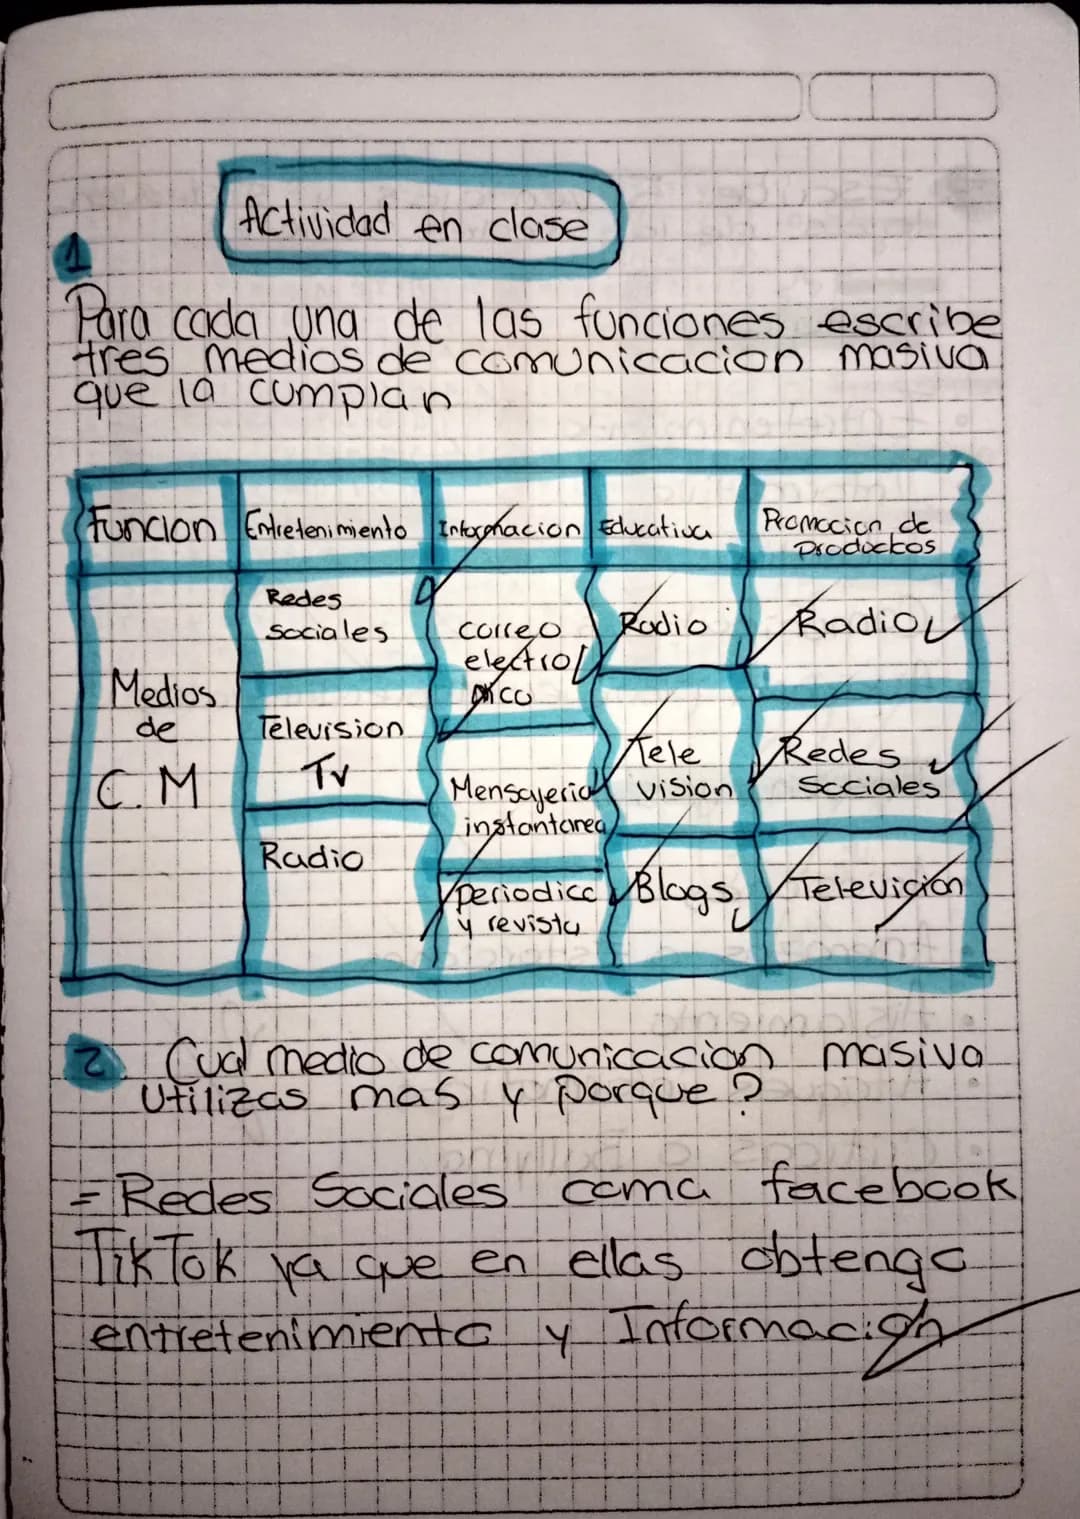 Actividad en clase
1
Para cada una de las funciones escribe
tres medios de comunicacion masiva
que la cumplan
Funcion
Entretenimiento
Informacion
Educativa
Promocion de
productos
Medios
de
C.M
Redes
sociales
Television
Tv
Radio
correo
electro
nico
Mensajeria
instantanea
periodico
y revista
Radio
Tele
vision
Blogs
Radio
Redes
Sociales
Televición
2 Cual medio de comunicacion masiva
utilizas mas y porque?
= Redes Sociales como facebook
TikTok ya que en ellas obtengo
entretenimiento y Información